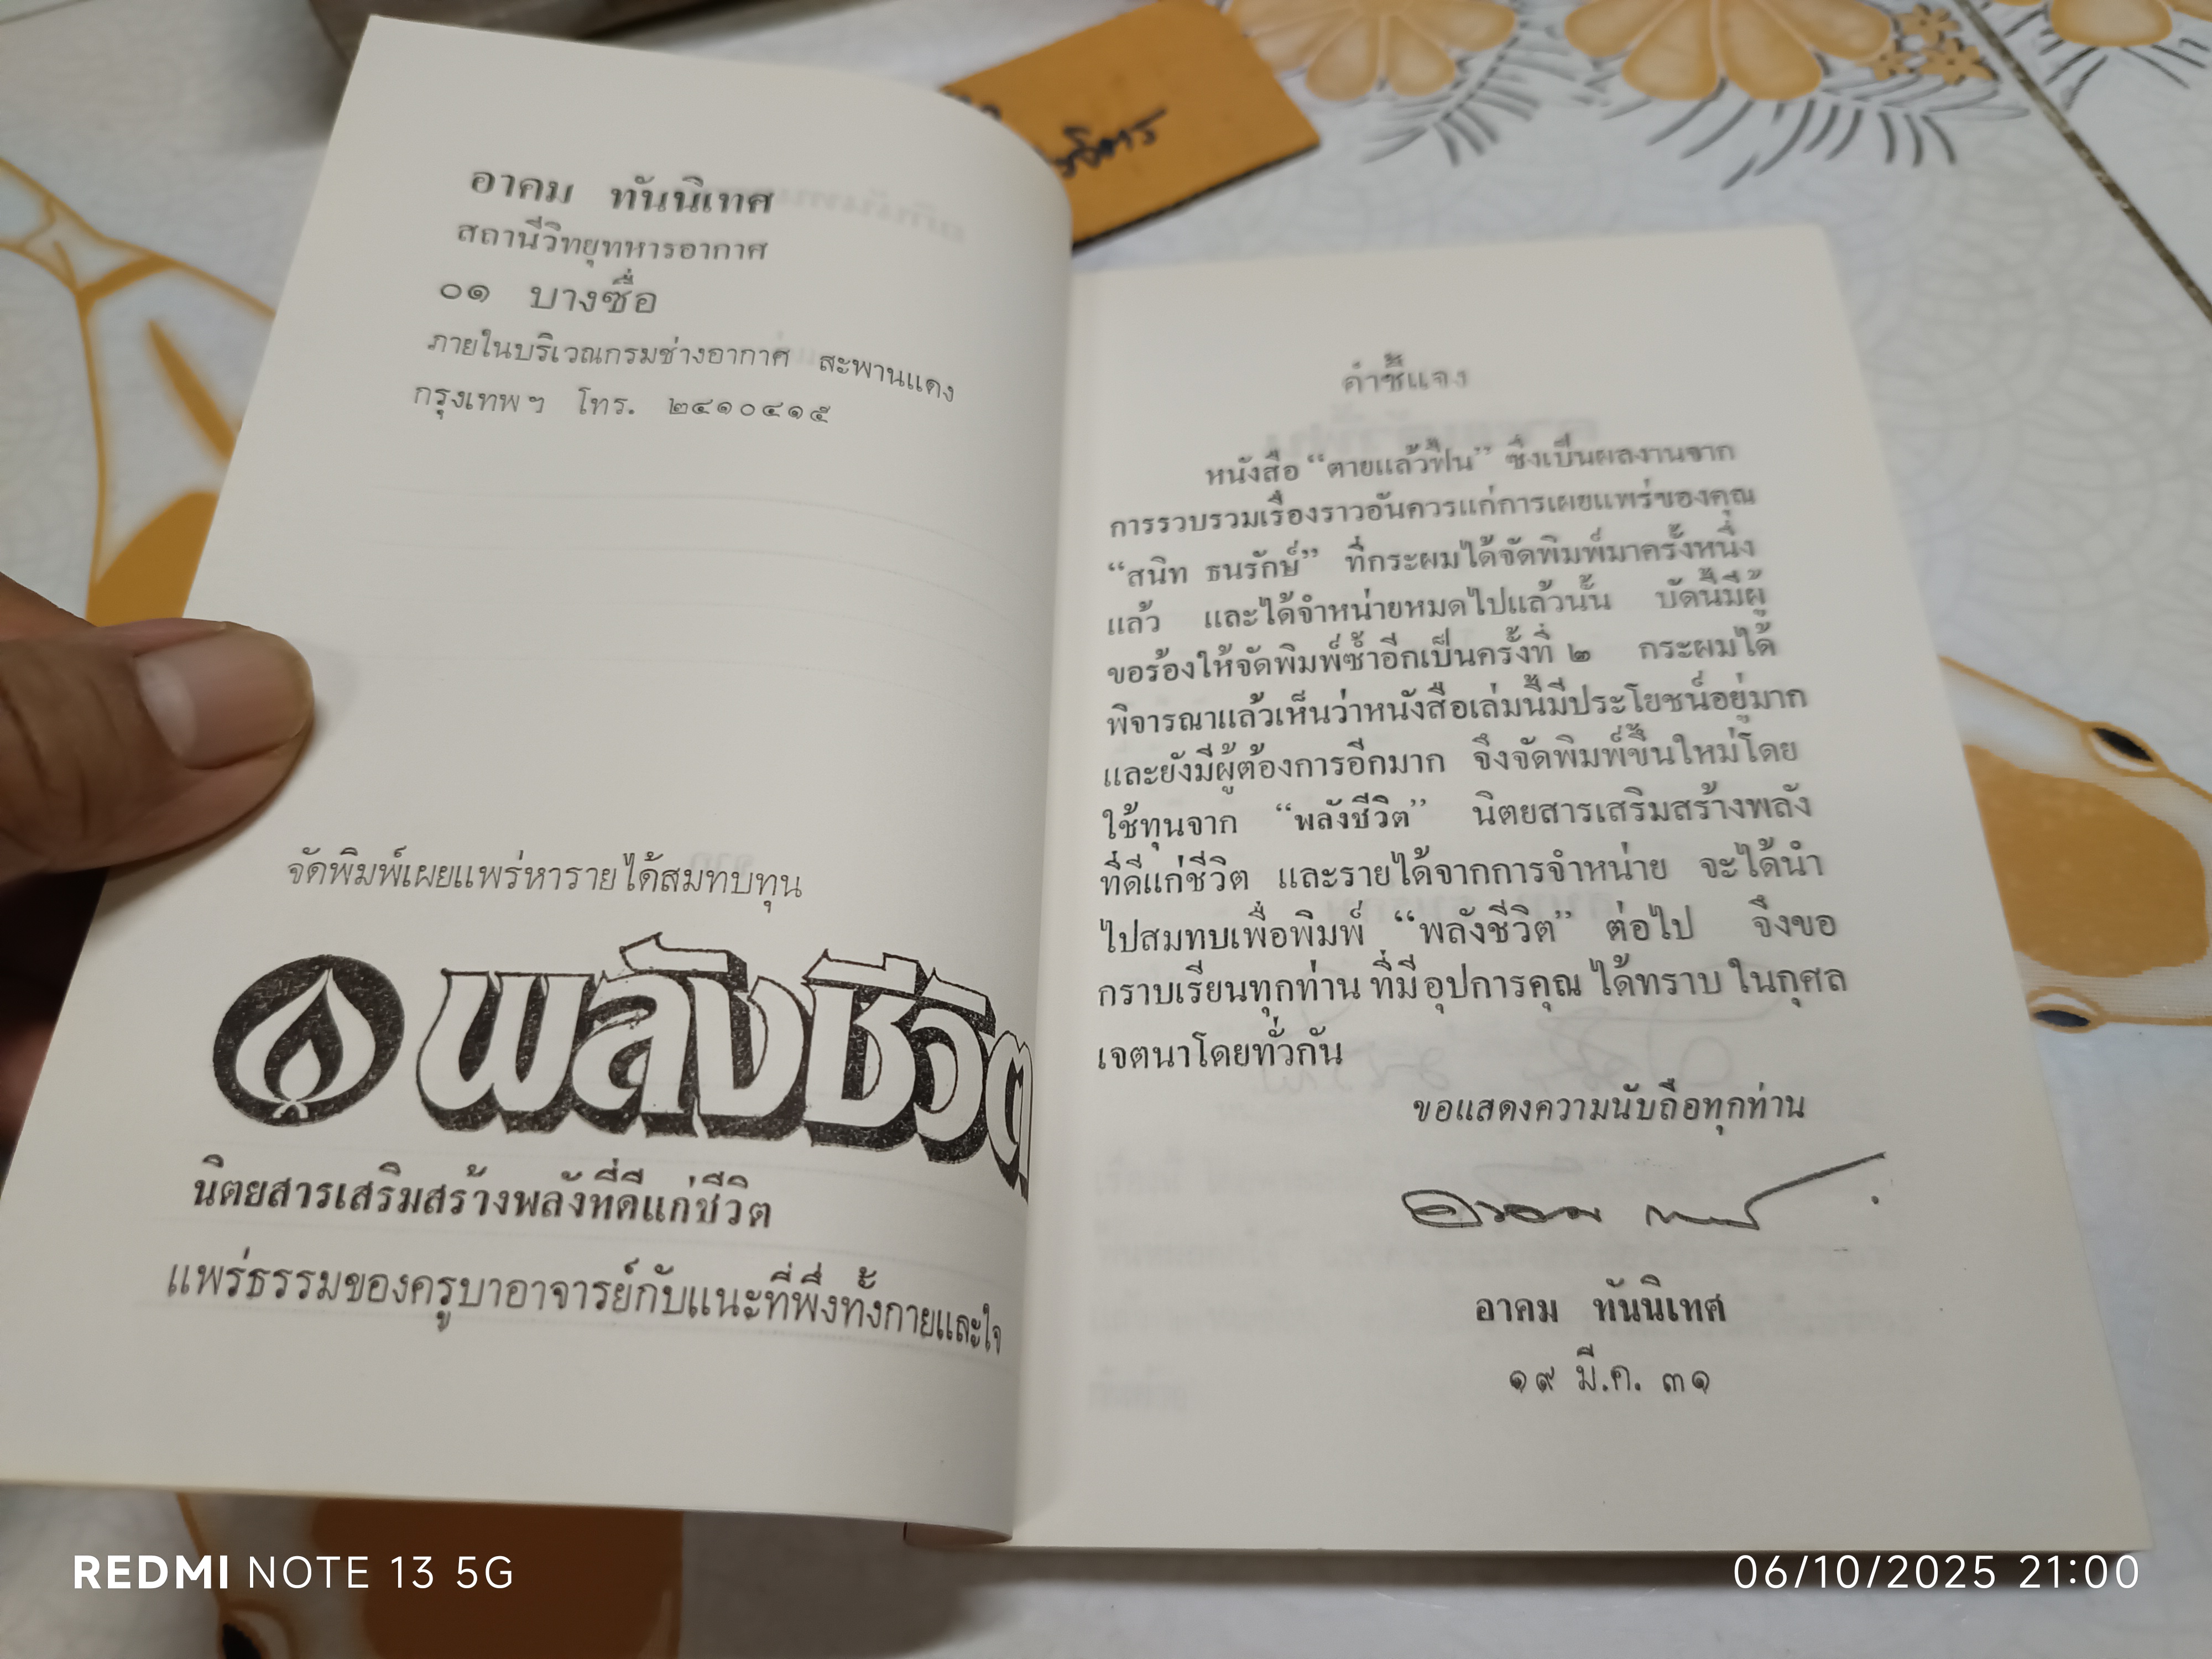 อาคม ทันนิเทศ
สถานีวิทยุทหารอากาศ
๐๑ บางซื่อ
ภายในบริเวณกรมช่างอากาศ สะพานแดง
กรุงเทพฯ โทร. ๒๔๑๐๔๑๕
จัดพิมพ์เผยแพร่หารายได้สมทบทุน
พลังชีวิต
นิตยสารเสริมสร้างพลังที่ดีแก่ชีวิต
แพร่ธรรมของครูบาอาจารย์กับแนะที่พึ่งทั้งกายและใจ
คำชี้แจง
หนังสือ “ตายแล้วฟื้น” ซึ่งเป็นผลงานจาก
การรวบรวมเรื่องราวอันควรแก่การเผยแพร่ของคุณ
“สนิท ธนรักษ์” ที่กระผมได้จัดพิมพ์มาครั้งหนึ่ง
แล้ว และได้จำหน่ายหมดไปแล้วนั้น บัดนี้มีผู้
ขอร้องให้จัดพิมพ์ซ้ำอีกเป็นครั้งที่ ๒ กระผมได้
พิจารณาแล้วเห็นว่าหนังสือเล่มนี้มีประโยชน์อยู่มาก
และยังมีผู้ต้องการอีกมาก จึงจัดพิมพ์ขึ้นใหม่โดย
ใช้ทุนจาก “พลังชีวิต” นิตยสารเสริมสร้างพลัง
ที่ดีแก่ชีวิต และรายได้จากการจำหน่าย จะได้นำ
ไปสมทบเพื่อพิมพ์ “พลังชีวิต” ต่อไป จึงขอ
กราบเรียนทุกท่าน ที่มีอุปการคุณ ได้ทราบ ในกุศล
เจตนาโดยทั่วกัน
ขอแสดงความนับถือทุกท่าน
อาคม ทันนิเทศ
๑๙ มี.ค. ๓๑
REDMI NOTE 13 5G
06/10/2025 21:00